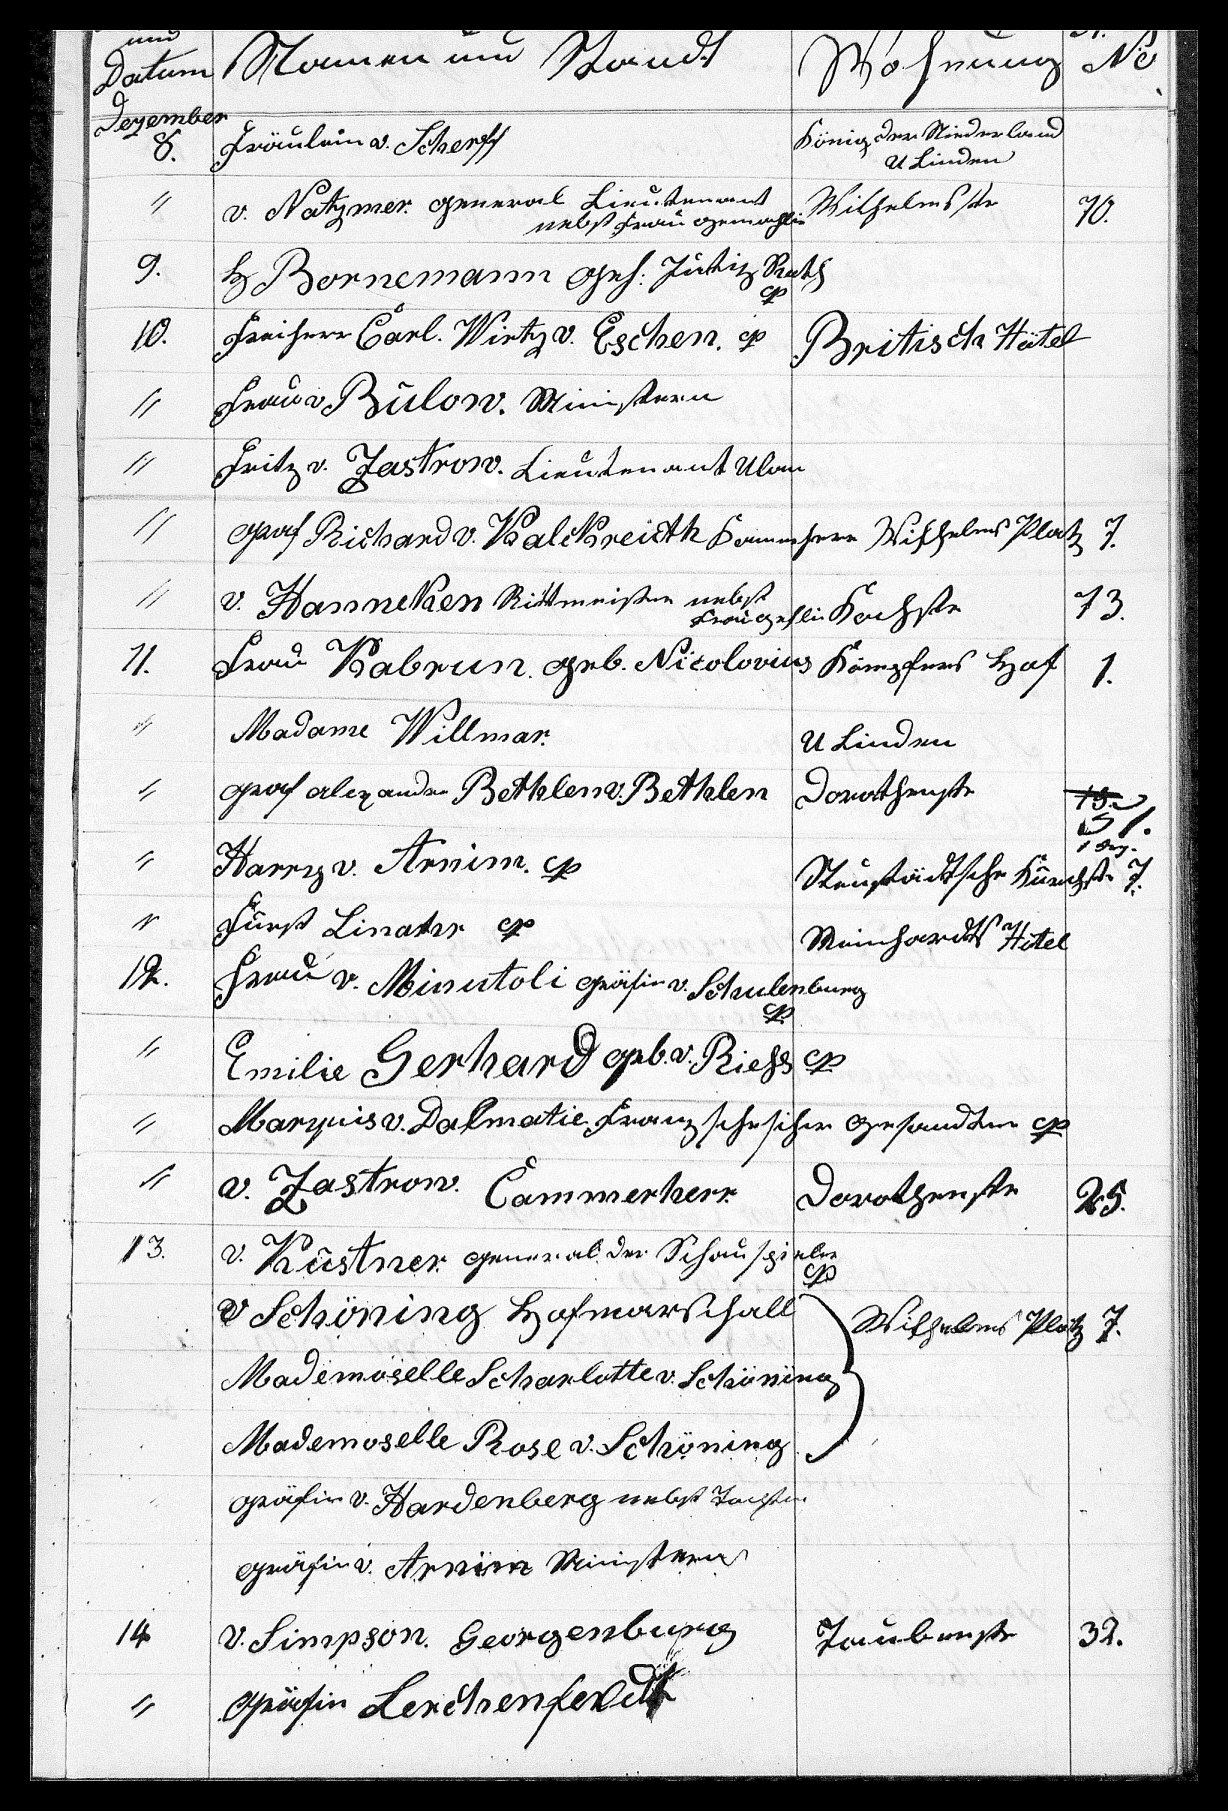 und
Datum Namen und Standt Wohnung No
Dezember
8. Fräulein v. Scherff König der Niederland
U Linden
" v. Natzmer. General Lieutenant Wilhelmsstr 70.
nebst Frau Gemahlin
9. H Bornemann Geh: Jutitz Rath
cp
10. Freiherr Carl. Wirtz v. Eschen. cp Britisch Hôtel
" Frau v Bülow. Ministern
" Fritz v. Zastrow. Lieutenant Ulan
" Graf Richard v. Kalckreicth Kammherr Wilhelms Platz 7.
" v. Hanneken Rittmeister nebst Kochstr 73.
Frau
11. Frau Kabrun. geb. Nicolovius Kämpfers Hof 1.
" Madame Willmar. U Linden
" Graf Alexander Bethlen v. Bethlen Dorothenstr 18.
51.
" Harry v. Arnim. cp Neustädtsche Kirchstr 7.
" Fürst Linatr cp Meinhardts Hôtel
12. Frau v. Minutoli Gräfin v. Schulenburg
cp
" Emilie Gerhard geb. v. Riess cp
" Marquis v. Dalmatie. Gesandter cp
" v. Zastrow. Cammerherr. Dorothenstr 25.
13. v. Küstner. General. der Schauspieler
cp
v Schöning Hofmarschall Wilhelms Platz 7.
Mademoselle Scharlotte v. Schöning
Mademoselle Rose v. Schöning
Gräfin v. Hardenberg nebst Tochter
Gräfin v. Arnim Ministern
14 v. Simpson. Georgenburg Taubenstr 32.
" Gräfin Lerchenfeldt